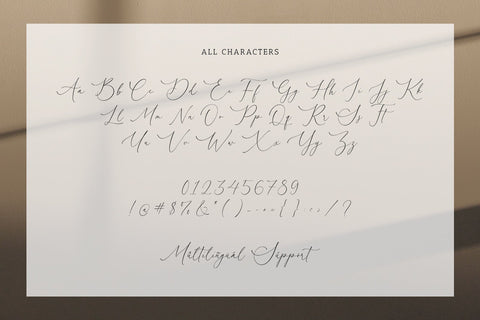 ALL CHARACTERS
Aa Bb Cc Dd Ee Ff Gg Hh Ii Jj Kk
Ll Mm Nn Oo Pp Qq Rr Ss Tt
Uu Vv Ww Xx Yy Zz
0123456789
!@#$%&*()-–+={}:;,/?
Mūltilingúäl Sùpport